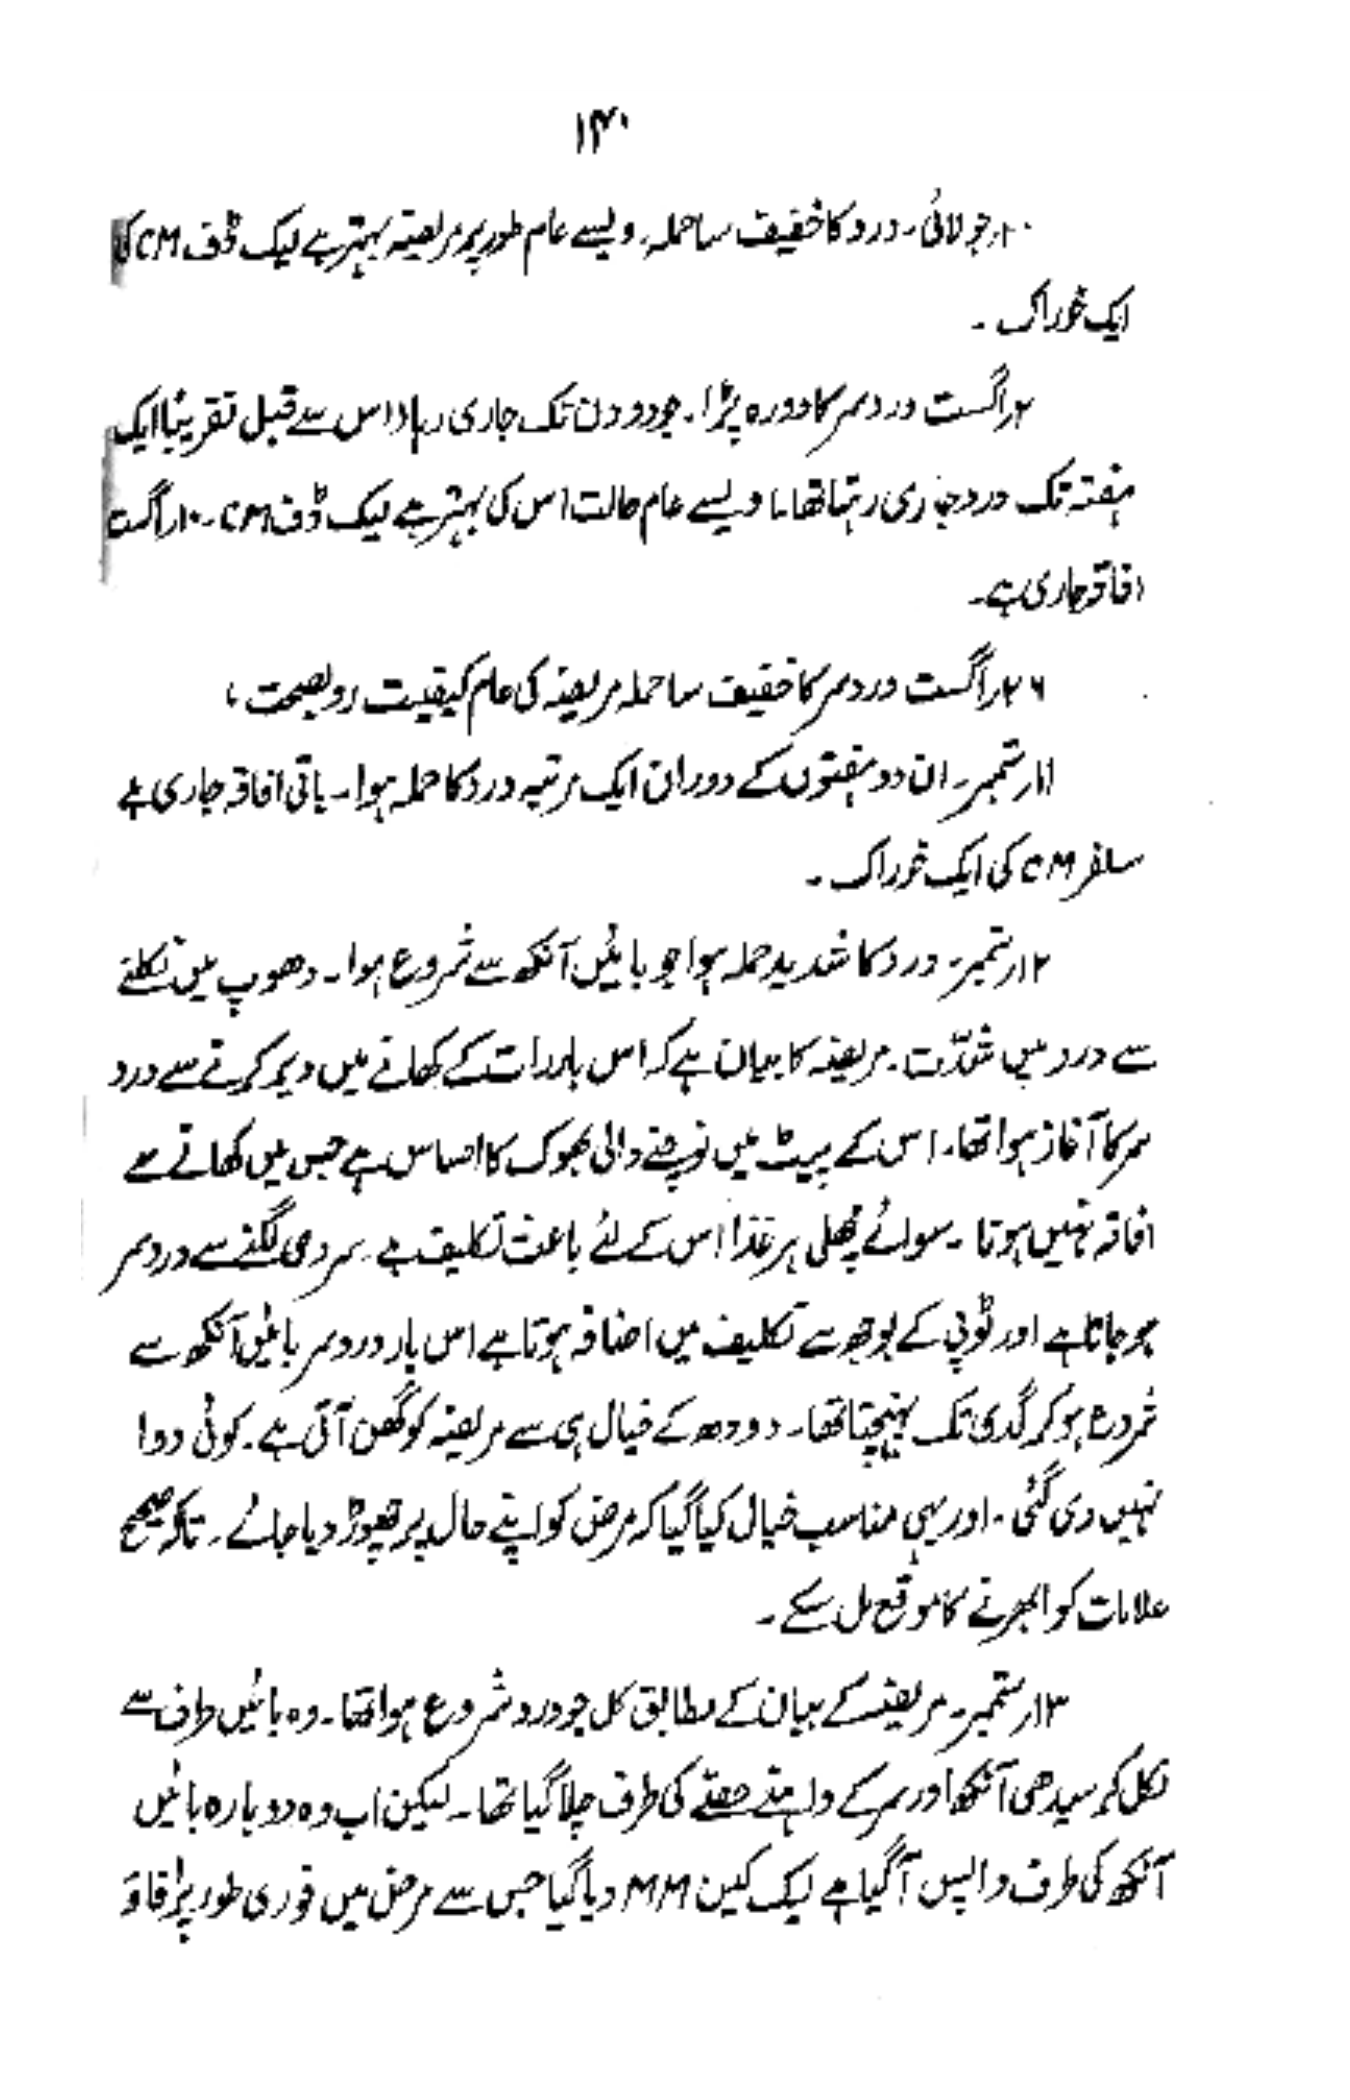 ۱۴۰
۱۰؍جولائی۔ درد کا خفیف سا حملہ، ویسے عام طور پر مریضہ بہتر ہے لیک ڈف CM کی
ایک خوراک ۔
۲؍اگست درد سر کا دورہ پڑا۔ جو دو دن تک جاری رہا (اس سے قبل تقریبًا ایک
ہفتہ تک درد جاری رہتا تھا۔) ویسے عام حالت اس کی بہتر ہے لیک ڈف CM۔ ۱۰؍اگست
افاقہ جاری ہے۔
۲۶؍اگست درد سر کا خفیف سا حملہ مریضہ کی عام کیفیت روبصحت ،
۱۱؍ستمبر۔ ان دو ہفتوں کے دوران ایک مرتبہ درد کا حملہ ہوا۔ باقی افاقہ جاری ہے
سلفر CM کی ایک خوراک ۔
۱۲؍ستمبر۔ درد کا شدید حملہ ہوا جو بائیں آنکھ سے شروع ہوا۔ دھوپ میں نکلنے
سے درد میں شدّت ۔ مریضہ کا بیان ہے کہ اس بار رات کے کھانے میں دیر کرنے سے درد
سر کا آغاز ہوا تھا۔ اس کے پیٹ میں نوچنے والی بھوک کا احساس ہے جس میں کھانے سے
افاقہ نہیں ہوتا ۔ سوائے مچھلی ہر غذا اس کے لئے باعث تکلیف ہے۔ سردی لگنے سے درد سر
ہو جاتا ہے اور ٹوپی کے بوجھ سے تکلیف میں اضافہ ہوتا ہے اس بار درد سر بائیں آنکھ سے
شروع ہو کر گدی تک پہنچتا تھا۔ دودھ کے خیال ہی سے مریضہ کو گھن آتی ہے۔ کوئی دوا
نہیں دی گئی ۔ اور یہی مناسب خیال کیا گیا کہ مرض کو اپنے حال پر چھوڑ دیا جائے۔ تاکہ صحیح
علامات کو ابھرنے کا موقع مل سکے ۔
۱۳؍ستمبر۔ مریضہ کے بیان کے مطابق کل جو درد شروع ہوا تھا۔ وہ بائیں طرف سے
نکل کر سیدھی آنکھ اور سر کے داہنے حصّے کی طرف چلا گیا تھا۔ لیکن اب وہ دوبارہ بائیں
آنکھ کی طرف واپس آ گیا ہے لیک کین MM دیا گیا جس سے مرض میں فوری طور پر افاقہ